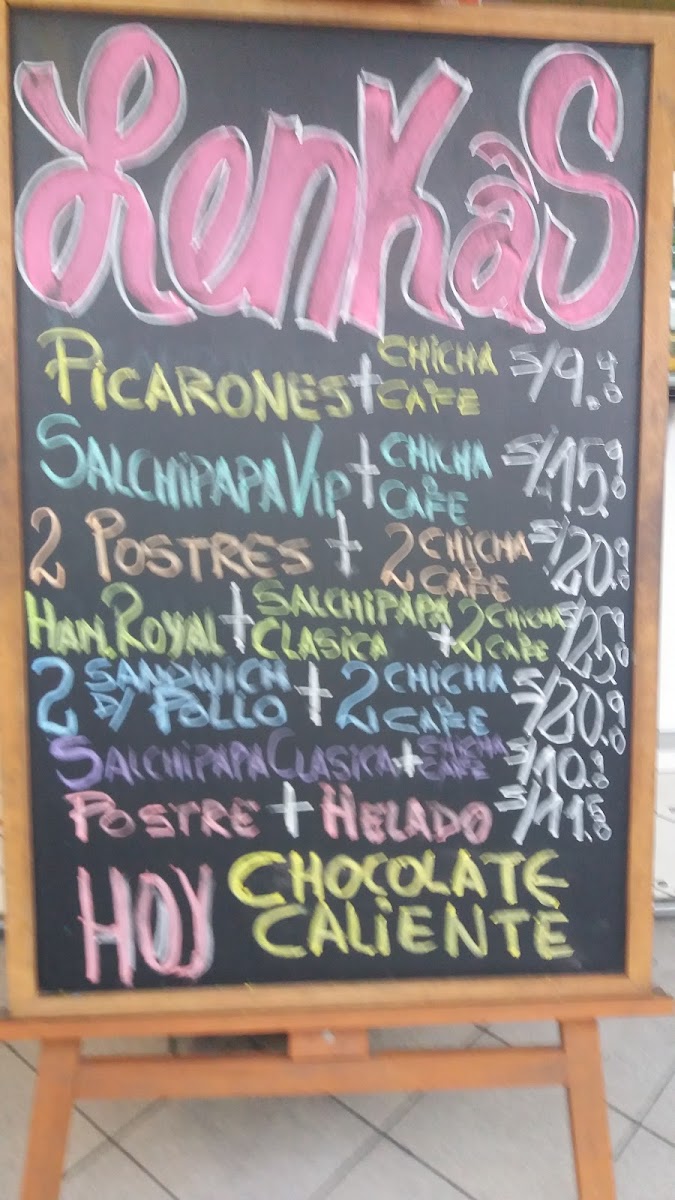 LenKâS
PICARONES + CHICHA CAFE S/9.
SALCHIPAPA VIP + CHICHA CAFE S/15.90
2 POSTRES + 2 CHICHA CAFE S/20.90
HAM. ROYAL + SALCHIPAPA CLASICA + 2 CHICHA CAFE S/25.90
2 SANDWICH D/ POLLO + 2 CHICHA CAFE S/20.90
SALCHIPAPA CLASICA + CHICHA CAFE S/10.
POSTRE + HELADO S/11.50
HOY CHOCOLATE CALIENTE